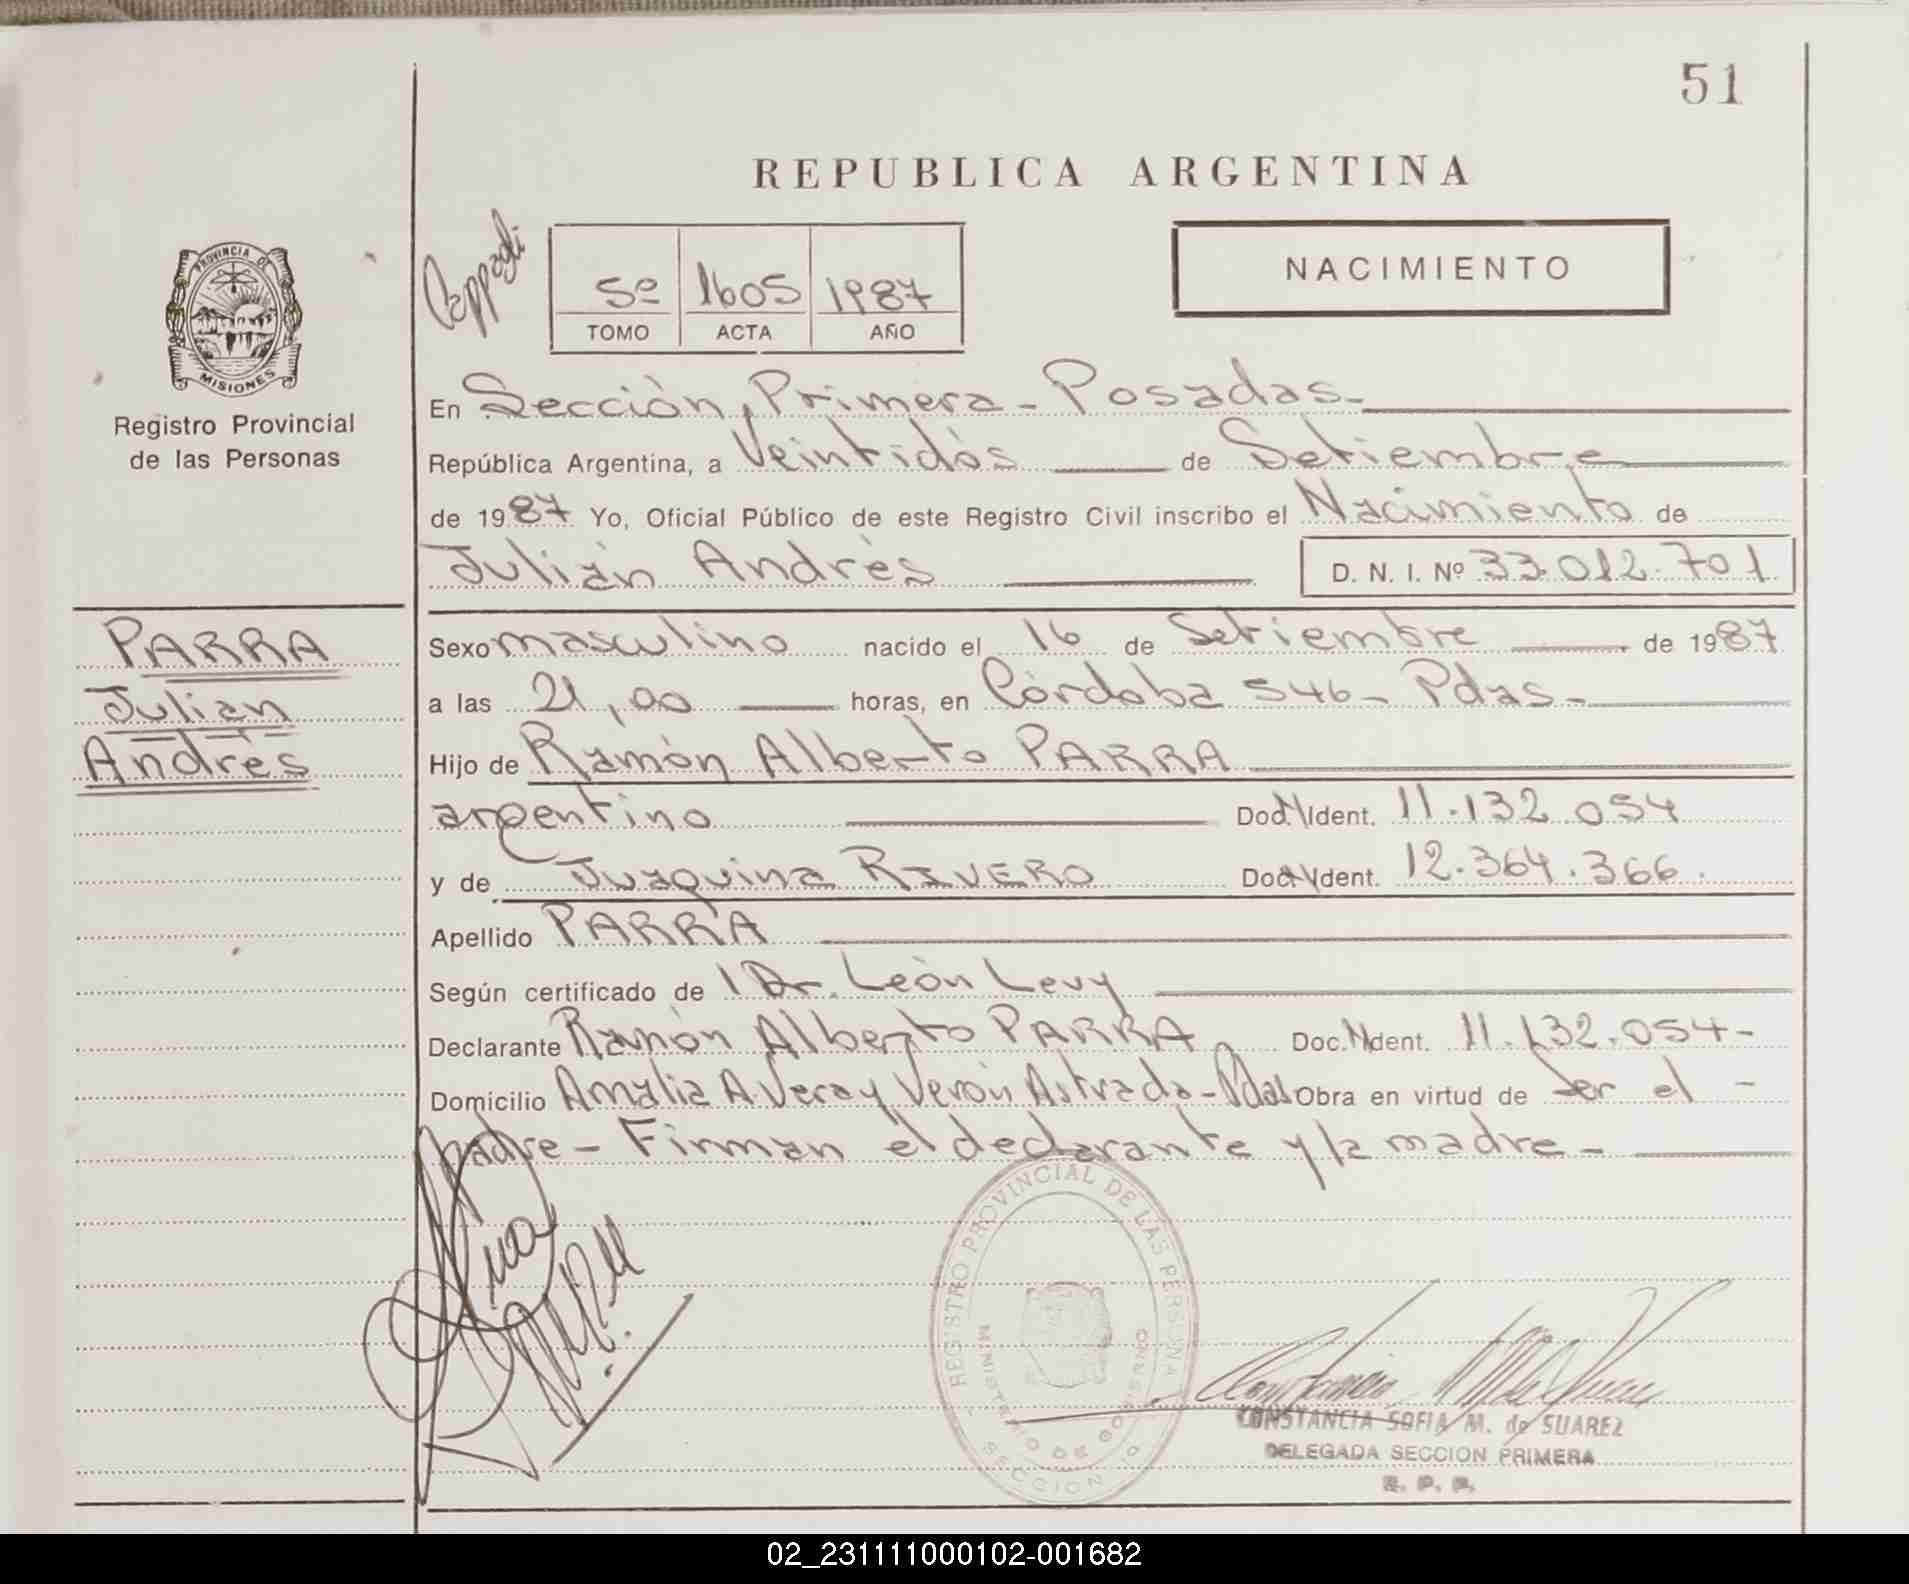 51
REPUBLICA ARGENTINA
Cappagli
5º 1605 1987
TOMO ACTA AÑO
NACIMIENTO
PROVINCIA DE
MISIONES
Registro Provincial
de las Personas
En Sección Primera - Posadas -
República Argentina, a Veintidós de Setiembre
de 1987 Yo, Oficial Público de este Registro Civil inscribo el Nacimiento de
Julián Andrés D. N. I. Nº 33.012.701
PARRA
Julián
Andrés
Sexo masculino nacido el 16 de Setiembre de 1987
a las 21,00 horas, en Córdoba 546 - Pdas -
Hijo de Ramón Alberto PARRA
argentino Doc. Ident. 11.132.054
y de Juaquina RIVERO Doc. Ident. 12.364.366.
Apellido PARRA
Según certificado de l Dr. León Levy
Declarante Ramón Alberto PARRA Doc. Ident. 11.132.054 -
Domicilio Amalia A. Vera y Verón Astrada - Pdas Obra en virtud de ser el -
padre - Firman el declarante y la madre -
REGISTRO PROVINCIAL DE LAS PERSONAS
MINISTERIO DE GOBIERNO
SECCION 1a
CONSTANCIA SOFIA M. de SUAREZ
DELEGADA SECCION PRIMERA
R. P. P.
02_231111000102-001682